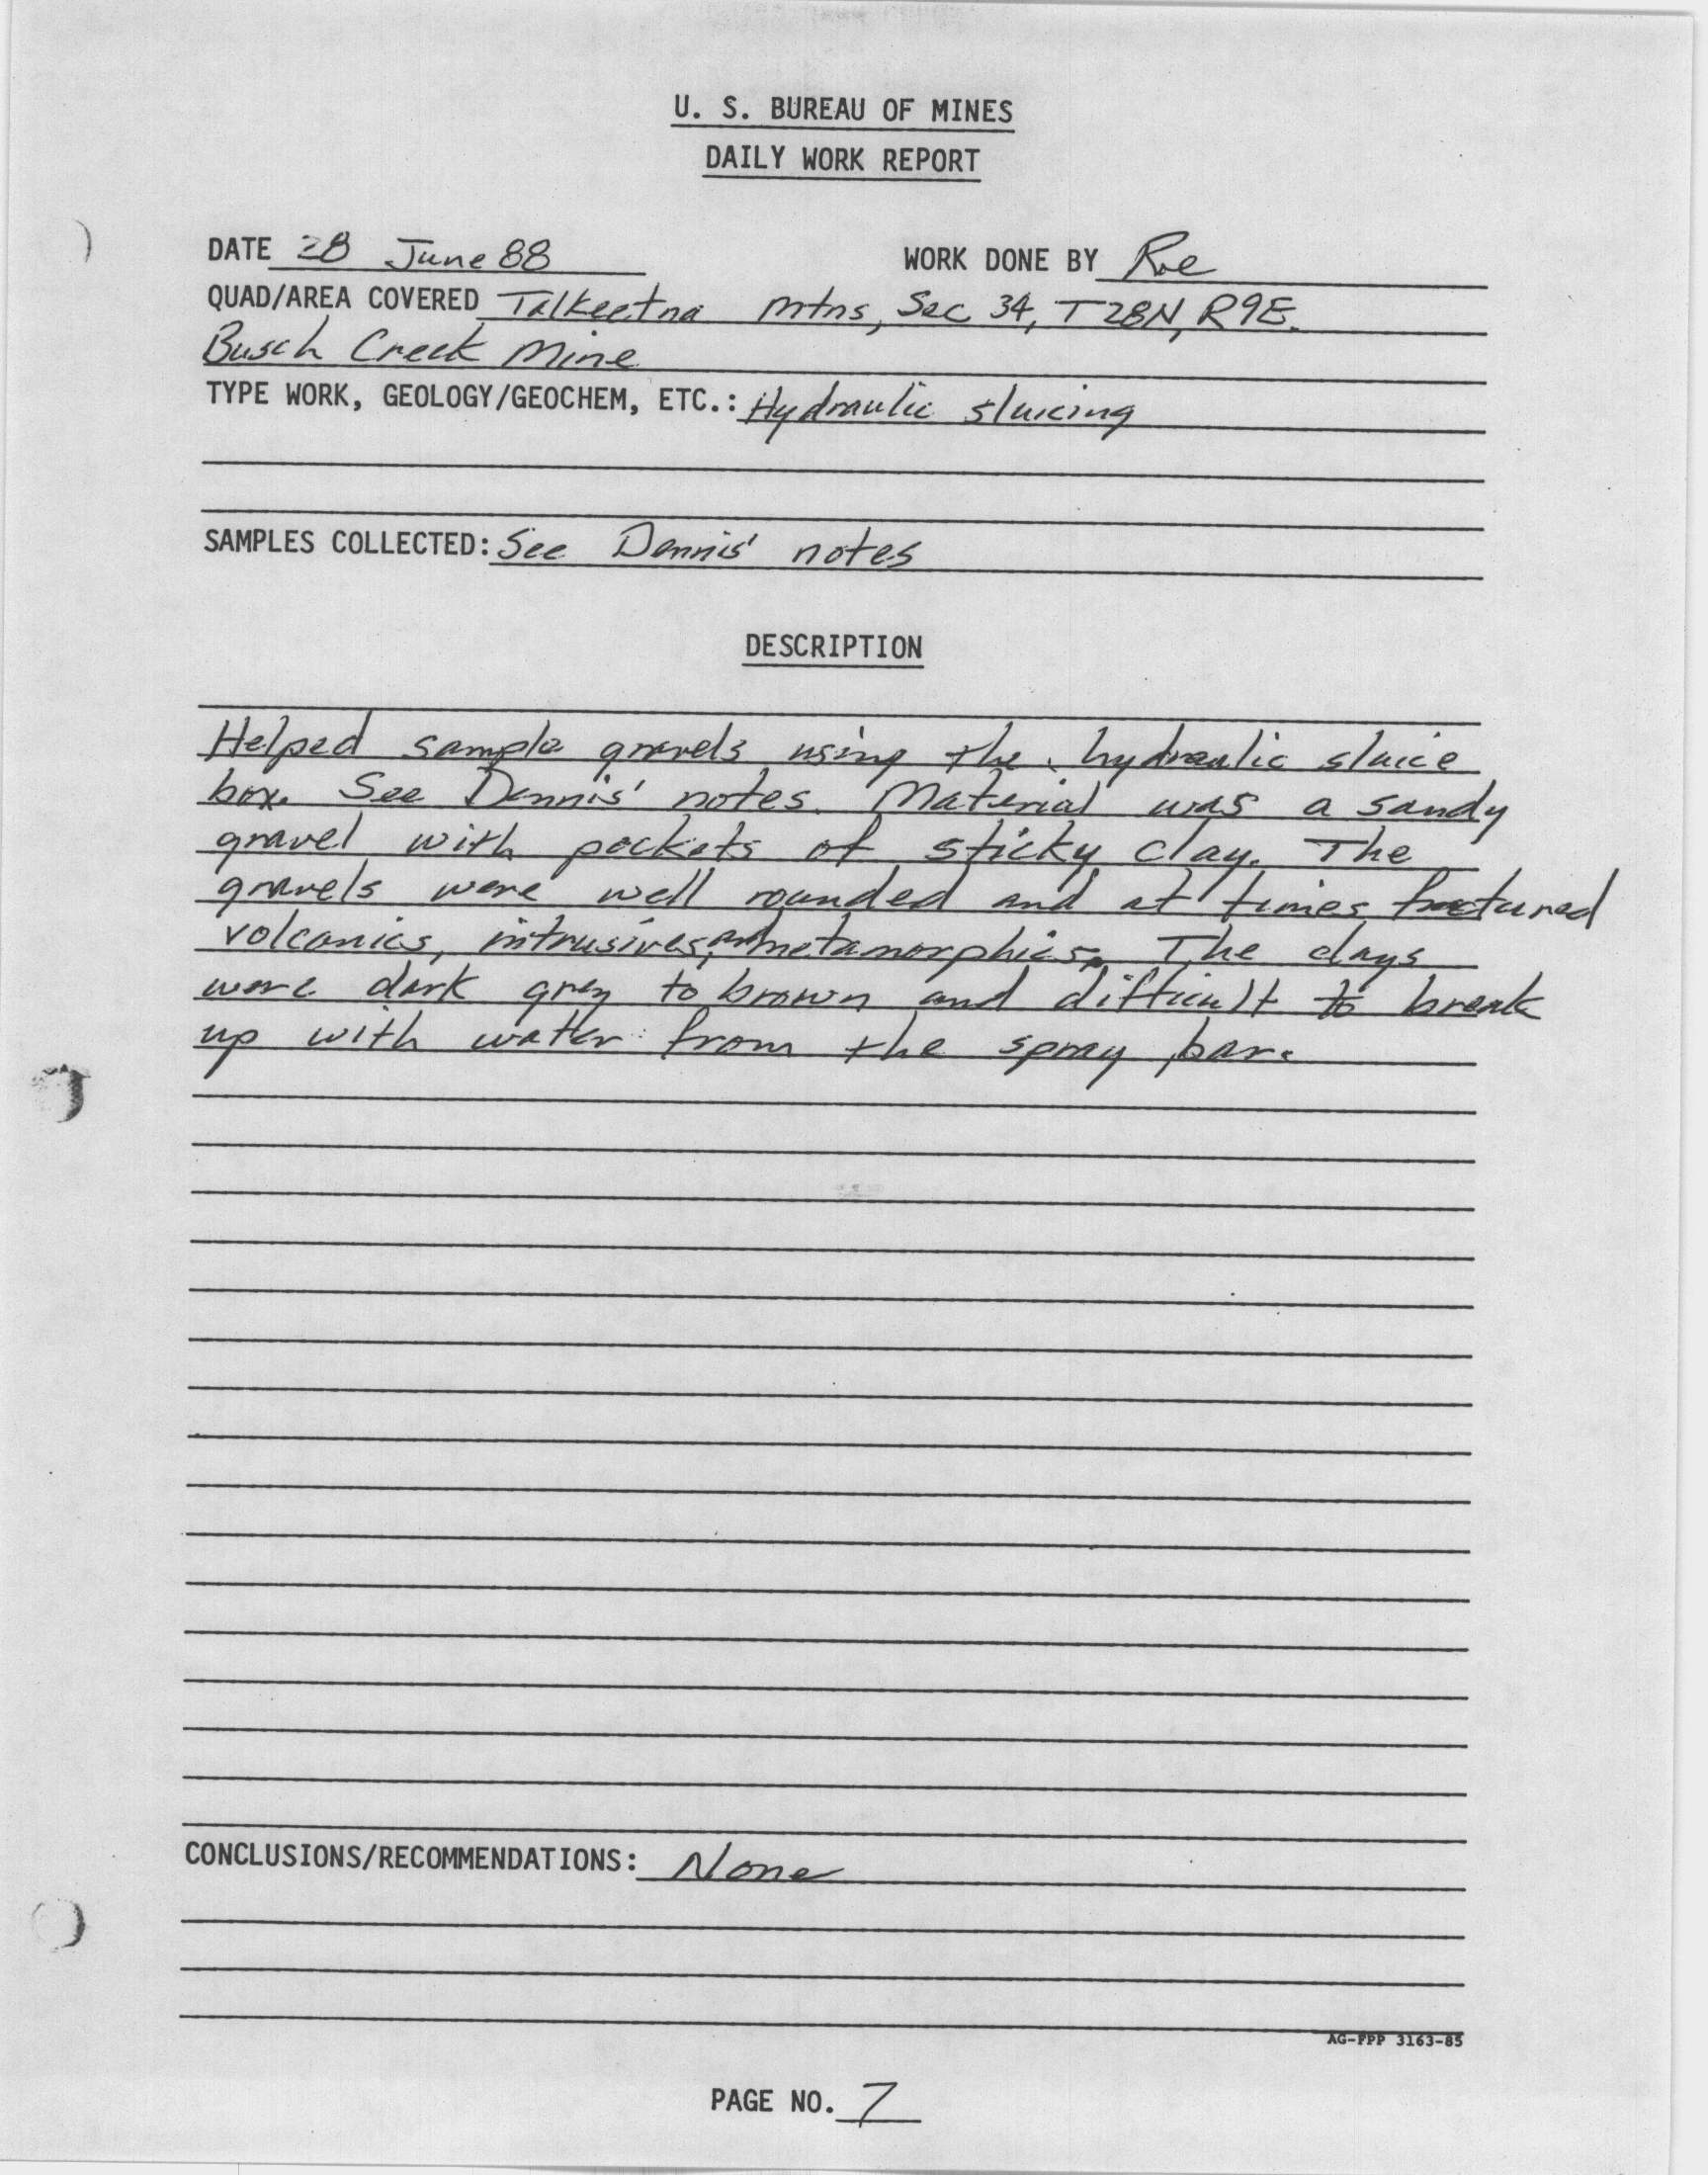 U. S. BUREAU OF MINES
DAILY WORK REPORT
DATE 28 June 88 WORK DONE BY Roe
QUAD/AREA COVERED Talkeetna Mtns, Sec 34, T28N, R9E.
Busch Creek Mine
TYPE WORK, GEOLOGY/GEOCHEM, ETC.: Hydraulic sluicing
SAMPLES COLLECTED: See Dennis' notes
DESCRIPTION
Helped sample gravels using the hydraulic sluice
box. See Dennis' notes. Material was a sandy
gravel with pockets of sticky clay. The
gravels were well rounded and at times fractured
volcanics, intrusives, and metamorphics. The clays
were dark grey to brown and difficult to break
up with water from the spray bar.
CONCLUSIONS/RECOMMENDATIONS: None
AG-FPP 3163-85
PAGE NO. 7